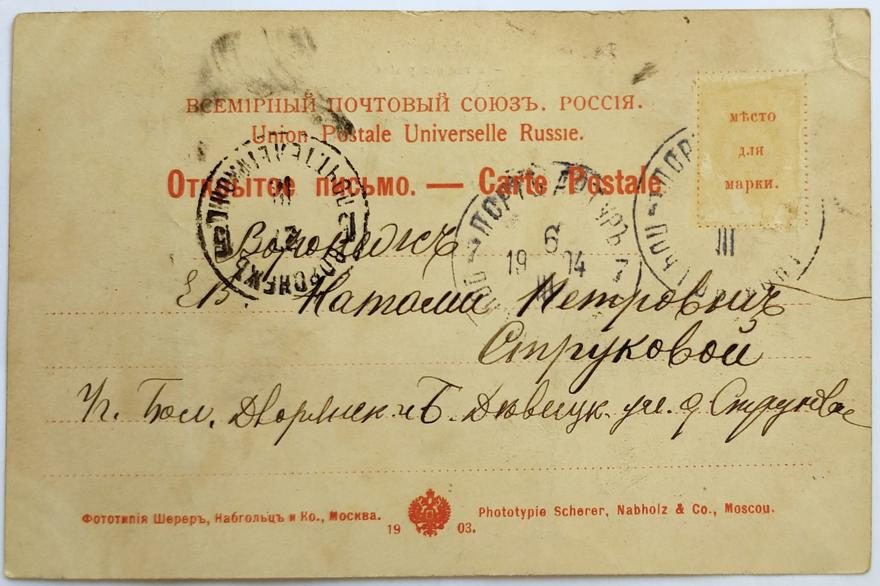 ВСЕМІРНЫЙ ПОЧТОВЫЙ СОЮЗЪ. РОССІЯ.
Union Postale Universelle Russie.
мѣсто
для
марки.
Открытое письмо. — Carte Postale
ПОРТЪ АРТУРЪ
6
19 04
III
III
ВОРОНЕЖЪ
Воронежъ
ЕВ Натали Петровнѣ
Струковой
Уг. Бол. Дворянск и Б. Девицк. ул. д. Струкова
Фототипія Шереръ, Набгольцъ и Ко., Москва.
1903.
Phototypie Scherer, Nabholz & Co., Moscou.